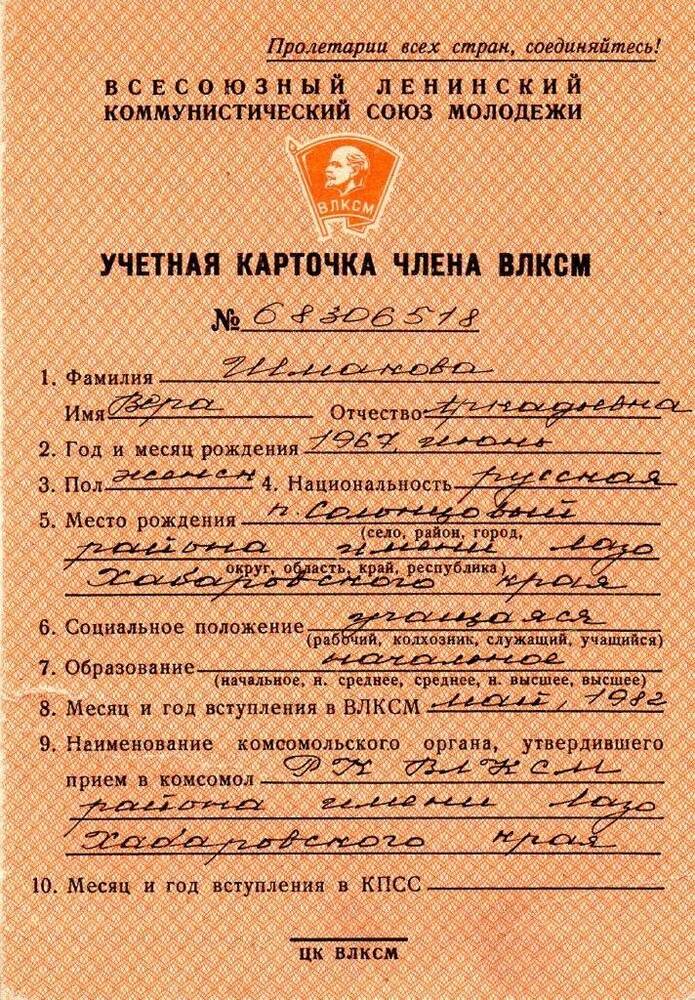 Пролетарии всех стран, соединяйтесь!
ВСЕСОЮЗНЫЙ ЛЕНИНСКИЙ
КОММУНИСТИЧЕСКИЙ СОЮЗ МОЛОДЕЖИ
ВЛКСМ
УЧЕТНАЯ КАРТОЧКА ЧЛЕНА ВЛКСМ
№ 68306518
1. Фамилия Шмакова
Имя Вера Отчество Аркадьевна
2. Год и месяц рождения 1967, июнь
3. Пол женск 4. Национальность русская
5. Место рождения п. Солонцовый
(село, район, город,
района имени Лазо
округ, область, край, республика)
Хабаровского края
6. Социальное положение учащаяся
(рабочий, колхозник, служащий, учащийся)
7. Образование начальное
(начальное, н. среднее, среднее, н. высшее, высшее)
8. Месяц и год вступления в ВЛКСМ май, 1982
9. Наименование комсомольского органа, утвердившего
прием в комсомол РК ВЛКСМ
района имени Лазо
Хабаровского края
10. Месяц и год вступления в КПСС
ЦК ВЛКСМ